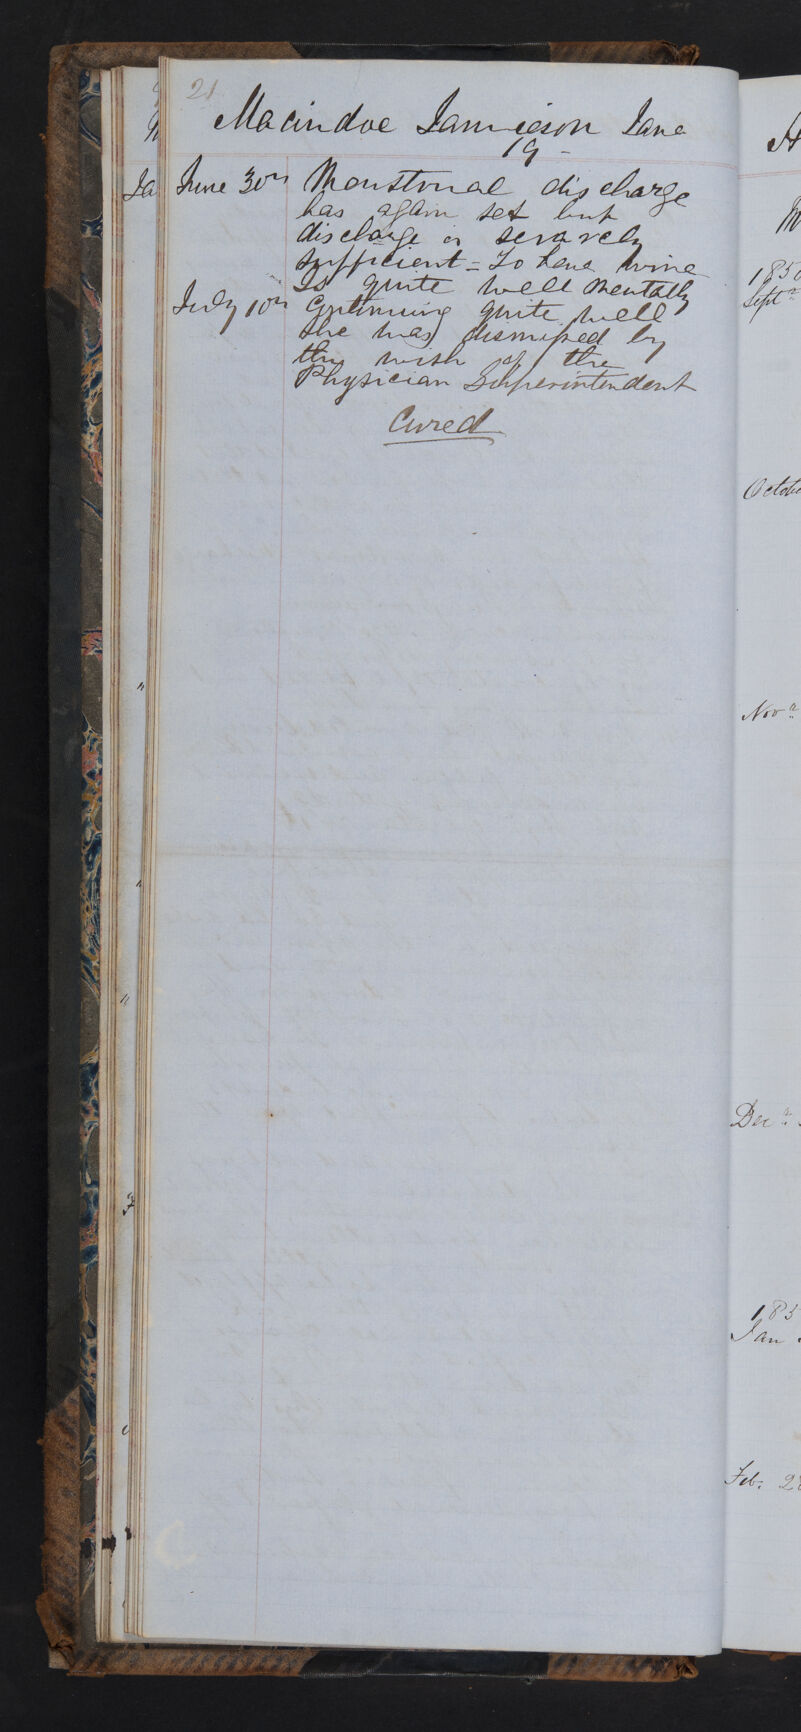 21
Macindoe Jamieson Jane
19
June 30th Menstrual discharge
has again set but
discharge is scarcely
sufficient = To have wine
Is quite well mentally
July 10th Continuing quite well
She was dismissed by
the wish of the
Physician Superintendent
Cured
Ja
185
Sept r
Octobe
Nov r
Dec r
183
Jan
Feb. 28